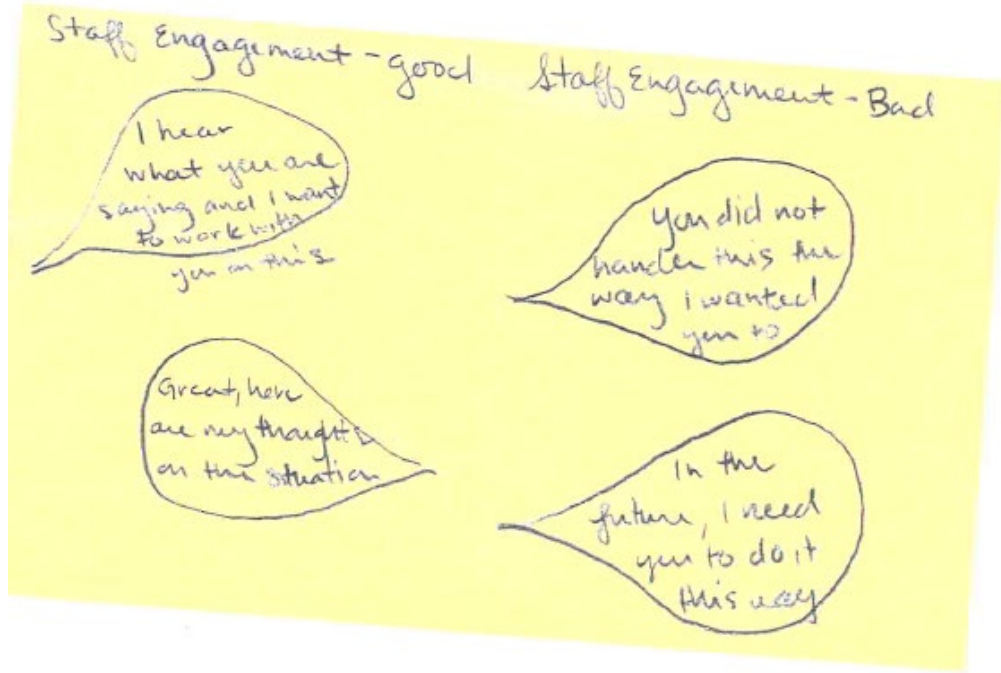 Staff Engagement - good
I hear
what you are
saying and I want
to work with
you on this
Great, here
are my thoughts
on this situation
Staff Engagement - Bad
you did not
handle this the
way I wanted
you to
In the
future, I need
you to do it
this way